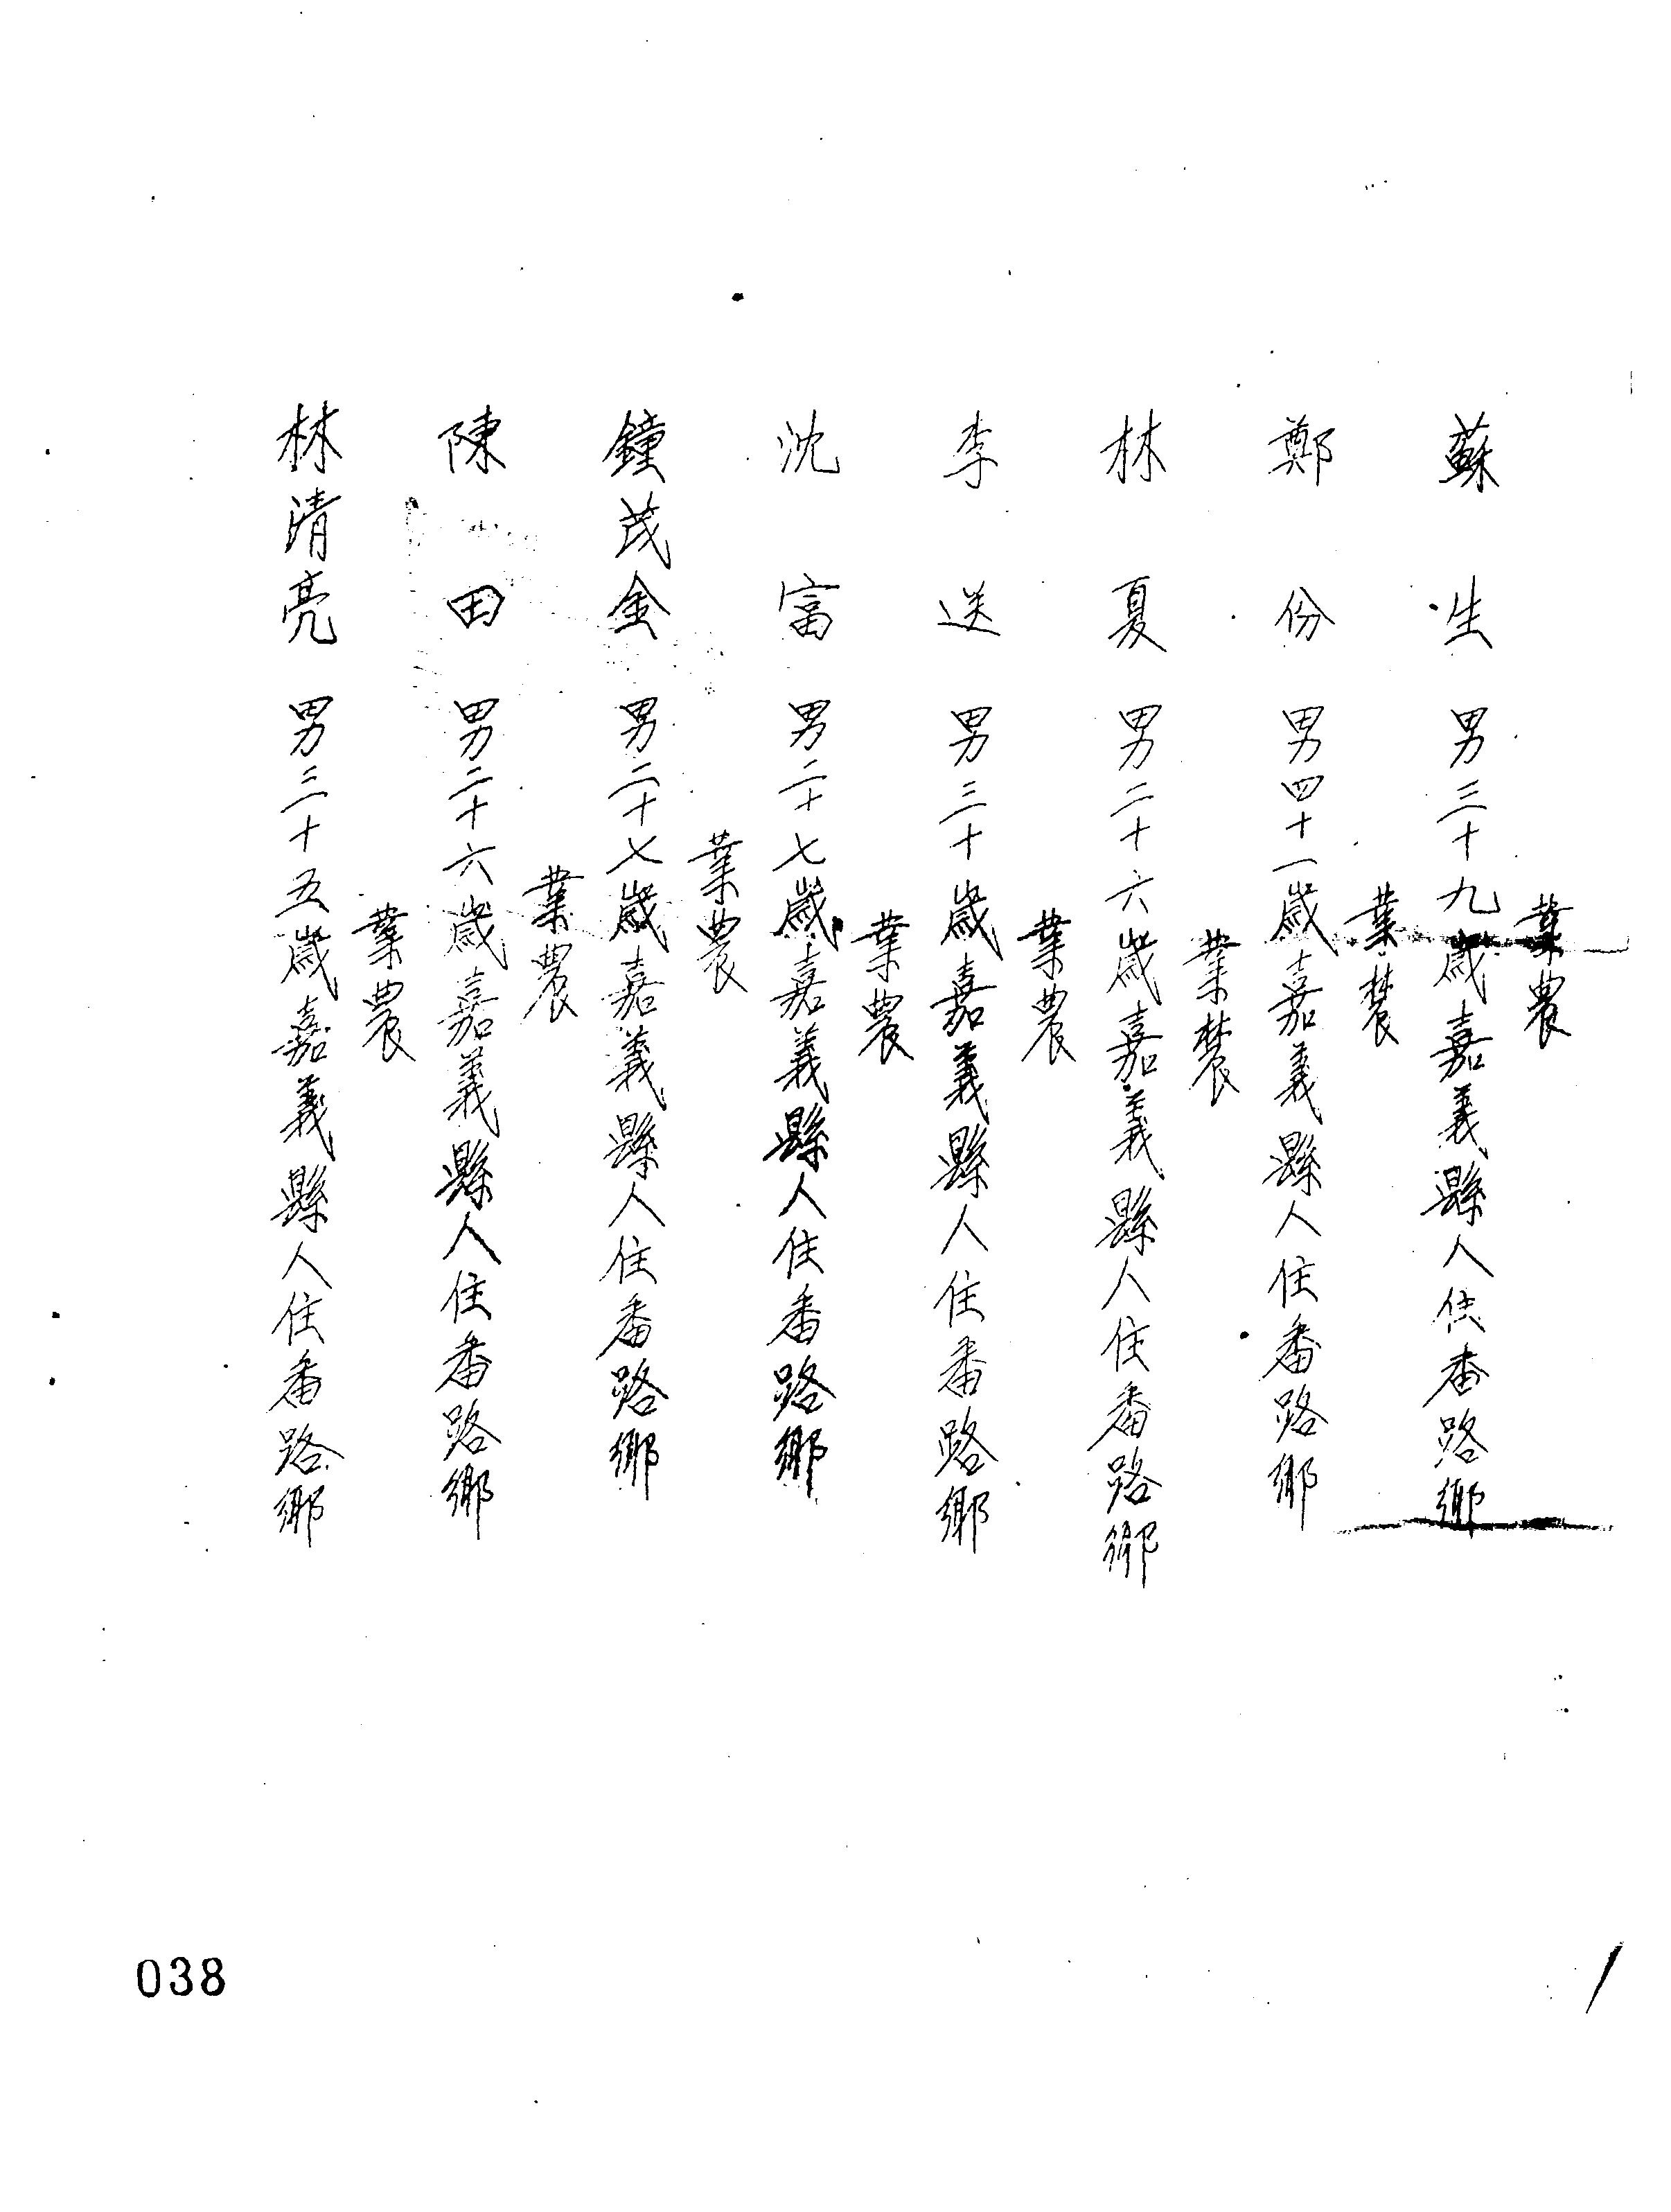 蘇　生　男三十九歲嘉義縣人住番路鄉
業農
鄭　份　男四十一歲嘉義縣人住番路鄉
業農
林　夏　男二十六歲嘉義縣人住番路鄉
業農
李　送　男三十歲嘉義縣人住番路鄉
業農
沈　富　男二十七歲嘉義縣人住番路鄉
業農
鐘茂金　男二十七歲嘉義縣人住番路鄉
業農
陳　田　男二十六歲嘉義縣人住番路鄉
業農
林清亮　男三十五歲嘉義縣人住番路鄉
業農
038